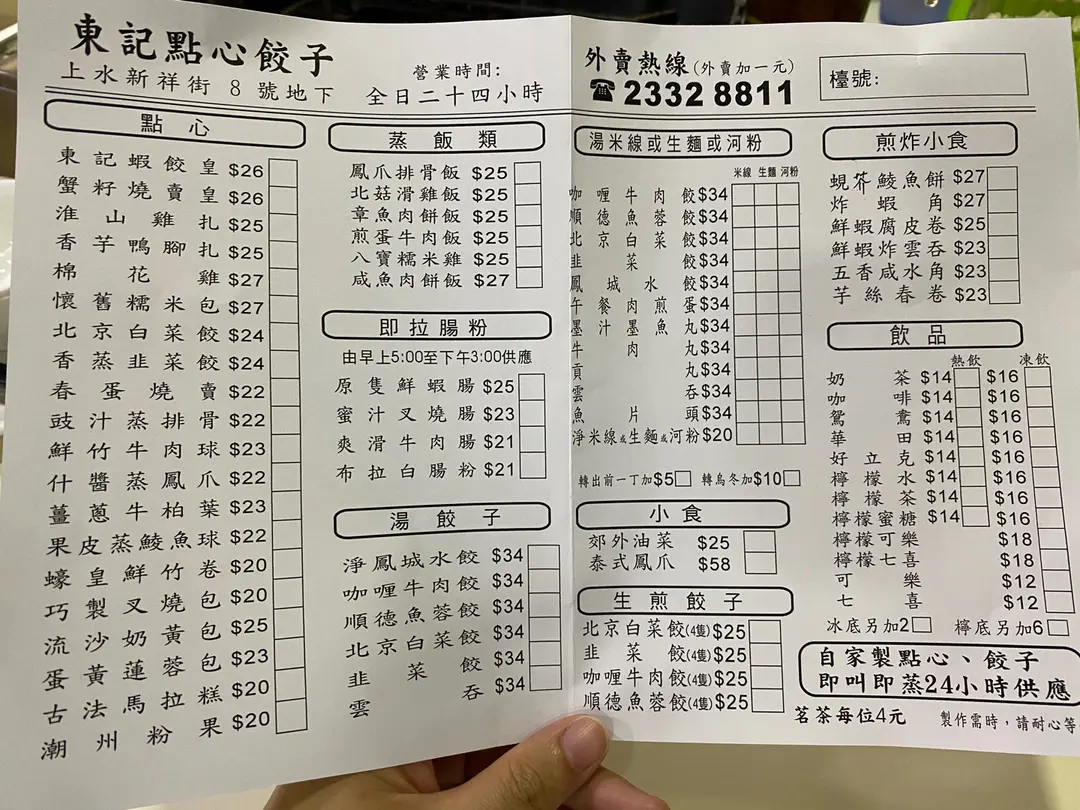 東記點心餃子
上水新祥街 8 號地下
營業時間:
全日二十四小時
點心
東記蝦餃皇 $26
蟹籽燒賣皇 $26
淮山雞扎 $25
香芋鴨腳扎 $25
棉花雞 $27
懷舊糯米包 $27
北京白菜餃 $24
香蒸韭菜餃 $24
春蛋燒賣 $22
豉汁蒸排骨 $22
鮮竹牛肉球 $23
什醬蒸鳳爪 $22
薑蔥牛柏葉 $23
果皮蒸鯪魚球 $22
蠔皇鮮竹卷 $20
巧製叉燒包 $20
流沙奶黃包 $25
蛋黃蓮蓉包 $23
古法馬拉糕 $20
潮州粉果 $20
蒸飯類
鳳爪排骨飯 $25
北菇滑雞飯 $25
章魚肉餅飯 $25
煎蛋牛肉飯 $25
八寶糯米雞 $25
咸魚肉餅飯 $27
即拉腸粉
由早上5:00至下午3:00供應
原隻鮮蝦腸 $25
蜜汁叉燒腸 $23
爽滑牛肉腸 $21
布拉白腸粉 $21
湯餃子
淨鳳城水餃 $34
咖喱牛肉餃 $34
順德魚蓉餃 $34
北京白菜餃 $34
韭菜餃 $34
雲吞 $34
外賣熱線(外賣加一元)
☎ 2332 8811
檯號:
湯米線或生麵或河粉
米線 生麵 河粉
咖喱牛肉餃 $34
順德魚蓉餃 $34
北京白菜餃 $34
韭菜餃 $34
鳳城水餃 $34
午餐肉煎蛋 $34
墨汁墨魚丸 $34
牛肉丸 $34
貢丸 $34
雲吞 $34
魚片頭 $34
淨米線或生麵或河粉 $20
轉出前一丁加$5 轉烏冬加$10
小食
郊外油菜 $25
泰式鳳爪 $58
生煎餃子
北京白菜餃(4隻) $25
韭菜餃(4隻) $25
咖喱牛肉餃(4隻) $25
順德魚蓉餃(4隻) $25
煎炸小食
蜆芥鯪魚餅 $27
炸蝦角 $27
鮮蝦腐皮卷 $25
鮮蝦炸雲吞 $23
五香咸水角 $23
芋絲春卷 $23
飲品
熱飲 凍飲
奶茶 $14 $16
咖啡 $14 $16
鴛鴦 $14 $16
華田 $14 $16
好立克 $14 $16
檸檬水 $14 $16
檸檬茶 $14 $16
檸檬蜜糖 $14 $16
檸檬可樂 $18
檸檬七喜 $18
可樂 $12
七喜 $12
冰底另加2 檸底另加6
自家製點心、餃子
即叫即蒸24小時供應
茗茶每位4元
製作需時,請耐心等